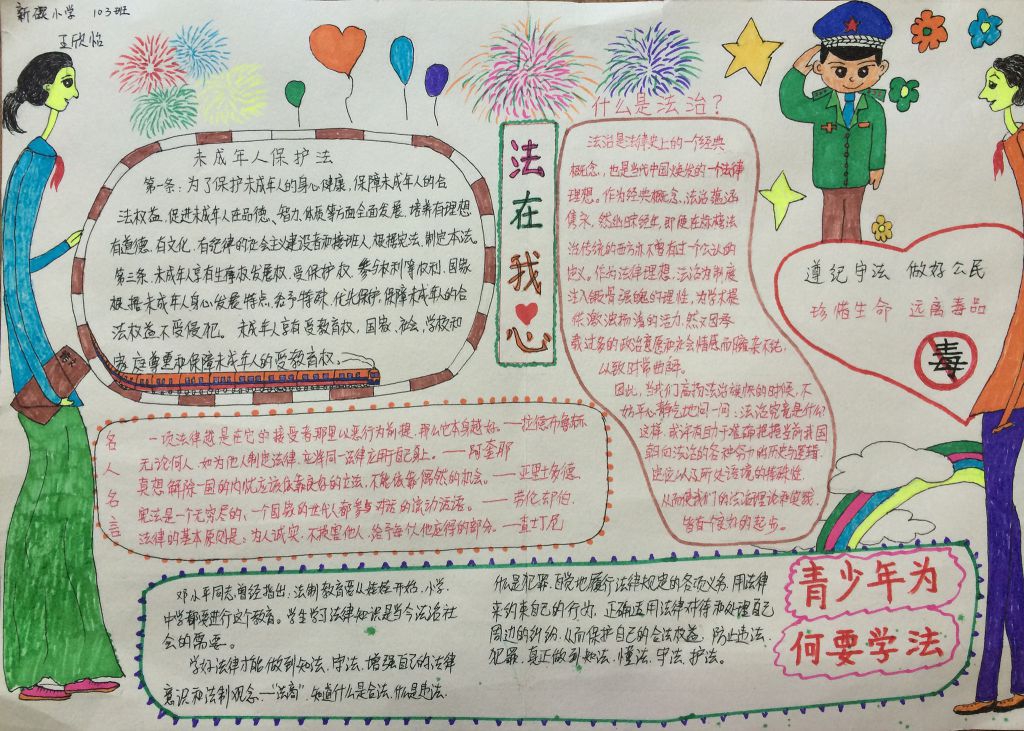 新碶小学 103班
王欣怡
未成年人保护法
第一条：为了保护未成年人的身心健康,保障未成年人的合
法权益,促进未成年人在品德、智力、体质等方面全面发展,培养有理想
有道德、有文化、有纪律的社会主义建设者和接班人,根据宪法,制定本法。
第三条,未成年人享有生存权发展权、受保护权、参与权利等权利,国家
根据未成年人身心发展特点,给予特殊、优先保护,保障未成年人的合
法权益不受侵犯。未成年人享有受教育权,国家、社会、学校和
家庭尊重和保障未成年人的受教育权。
法在我心
什么是法治？
法治是法律史上的一个经典
概念,也是当代中国焕发的一个法律
理想。作为经典概念,法治蕴涵
隽永,然
定义。作为法律理想,法治为制度
注入
供激浊扬清的活力,然又因承
载过多的政治意愿和社会情感而
以致时常曲解。
因此,当我们高扬法治旗帜的时候,不
妨平心静气地问一问：法治究竟是什么？
这样,或许有助于准确把握当前我国
朝向法治的各种努力的历史与逻辑
定位以及所处语境的
从而使我们的法治理论和实践,
皆有一个良好的起步。
遵纪守法 做好公民
珍惜生命 远离毒品
毒
名人名言
一项法律越是在它的接受者那里以恶行为前提,那么它本身越好。——拉德布鲁赫
无论何人,如为他人制定法律,应将同一法律应用于自己身上。——阿奎那
真想解除一国的内忧应该依靠良好的立法,不能依靠偶然的机会。——亚里士多德
宪法是一个无穷尽的、一个国家的世代人都参与对话的流动话语。——劳伦却伯
法律的基本原则是：为人诚实,不损害他人,给予每个人他应得的部分。——查士丁尼
邓小平同志曾经指出：法制教育要从娃娃开始,小学、
中学都要进行这个教育。学生学习法律知识是当今法治社
会的需要。
学好法律才能做到知法、守法、增强自己的法律
意识和法制观念—"法商",知道什么是合法,什么是违法、
什么是犯罪,自觉地履行法律规定的各项义务,用法律
来约束自己的行为,正确运用法律对待和处理自己
周边的纠纷,从而保护自己的合法权益,防止违法、
犯罪,真正做到知法、懂法、守法、护法。
青少年为
何要学法